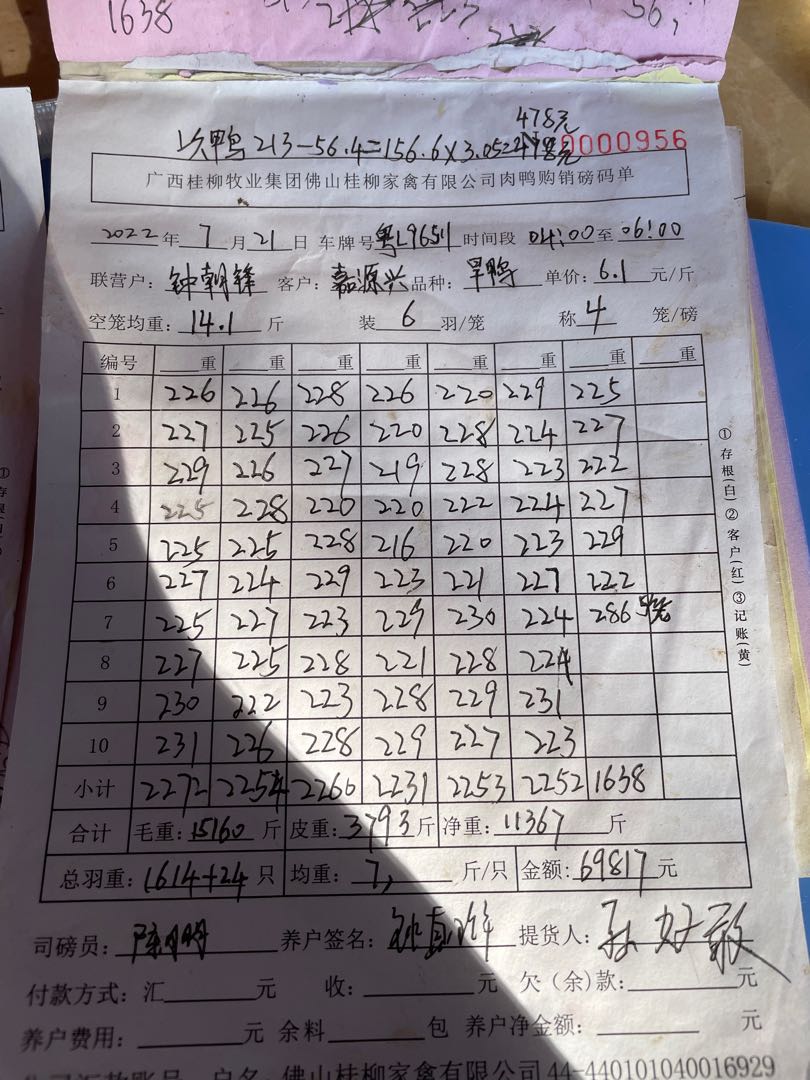 1638
56,
478元
次鸭 213-56.4=156.6×3.05= N00000956
广西桂柳牧业集团佛山桂柳家禽有限公司肉鸭购销磅码单
2022年7月21日 车牌号 粤L9651 时间段 04:00至06:00
联营户: 钟朝锋 客户: 嘉源兴 品种: 旱鸭 单价: 6.1元/斤
空笼均重: 14.1斤 装6羽/笼 称4笼/磅
编号 重 重 重 重 重 重 重 重
1 226 226 228 226 220 229 225
2 227 225 226 220 228 224 227
3 229 226 227 219 228 223 222
4 225 228 220 220 222 224 227
5 225 225 228 216 220 223 229
6 227 224 229 223 221 227 222
7 225 227 223 229 230 224 286
8 227 225 228 221 228 224
9 230 222 223 228 229 231
10 231 226 228 229 227 223
小计 2272 2254 2260 2231 2253 2252 1638
合计 毛重: 15160斤 皮重: 3793斤 净重: 11367斤
总羽重: 1614+24只 均重: 7, 斤/只 金额: 69817元
司磅员: 养户签名: 提货人:
付款方式: 汇 元 收: 元 欠(余)款: 元
养户费用: 元 余料 包 养户净金额: 元
户名 佛山桂柳家禽有限公司 44-440101040016929
①存根(白)②客户(红)③记账(黄)